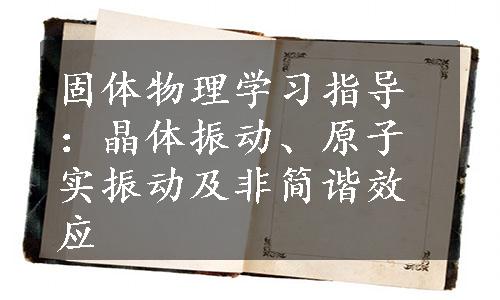 固体物理学习指导
：晶体振动、原子
实振动及非简谐效
应